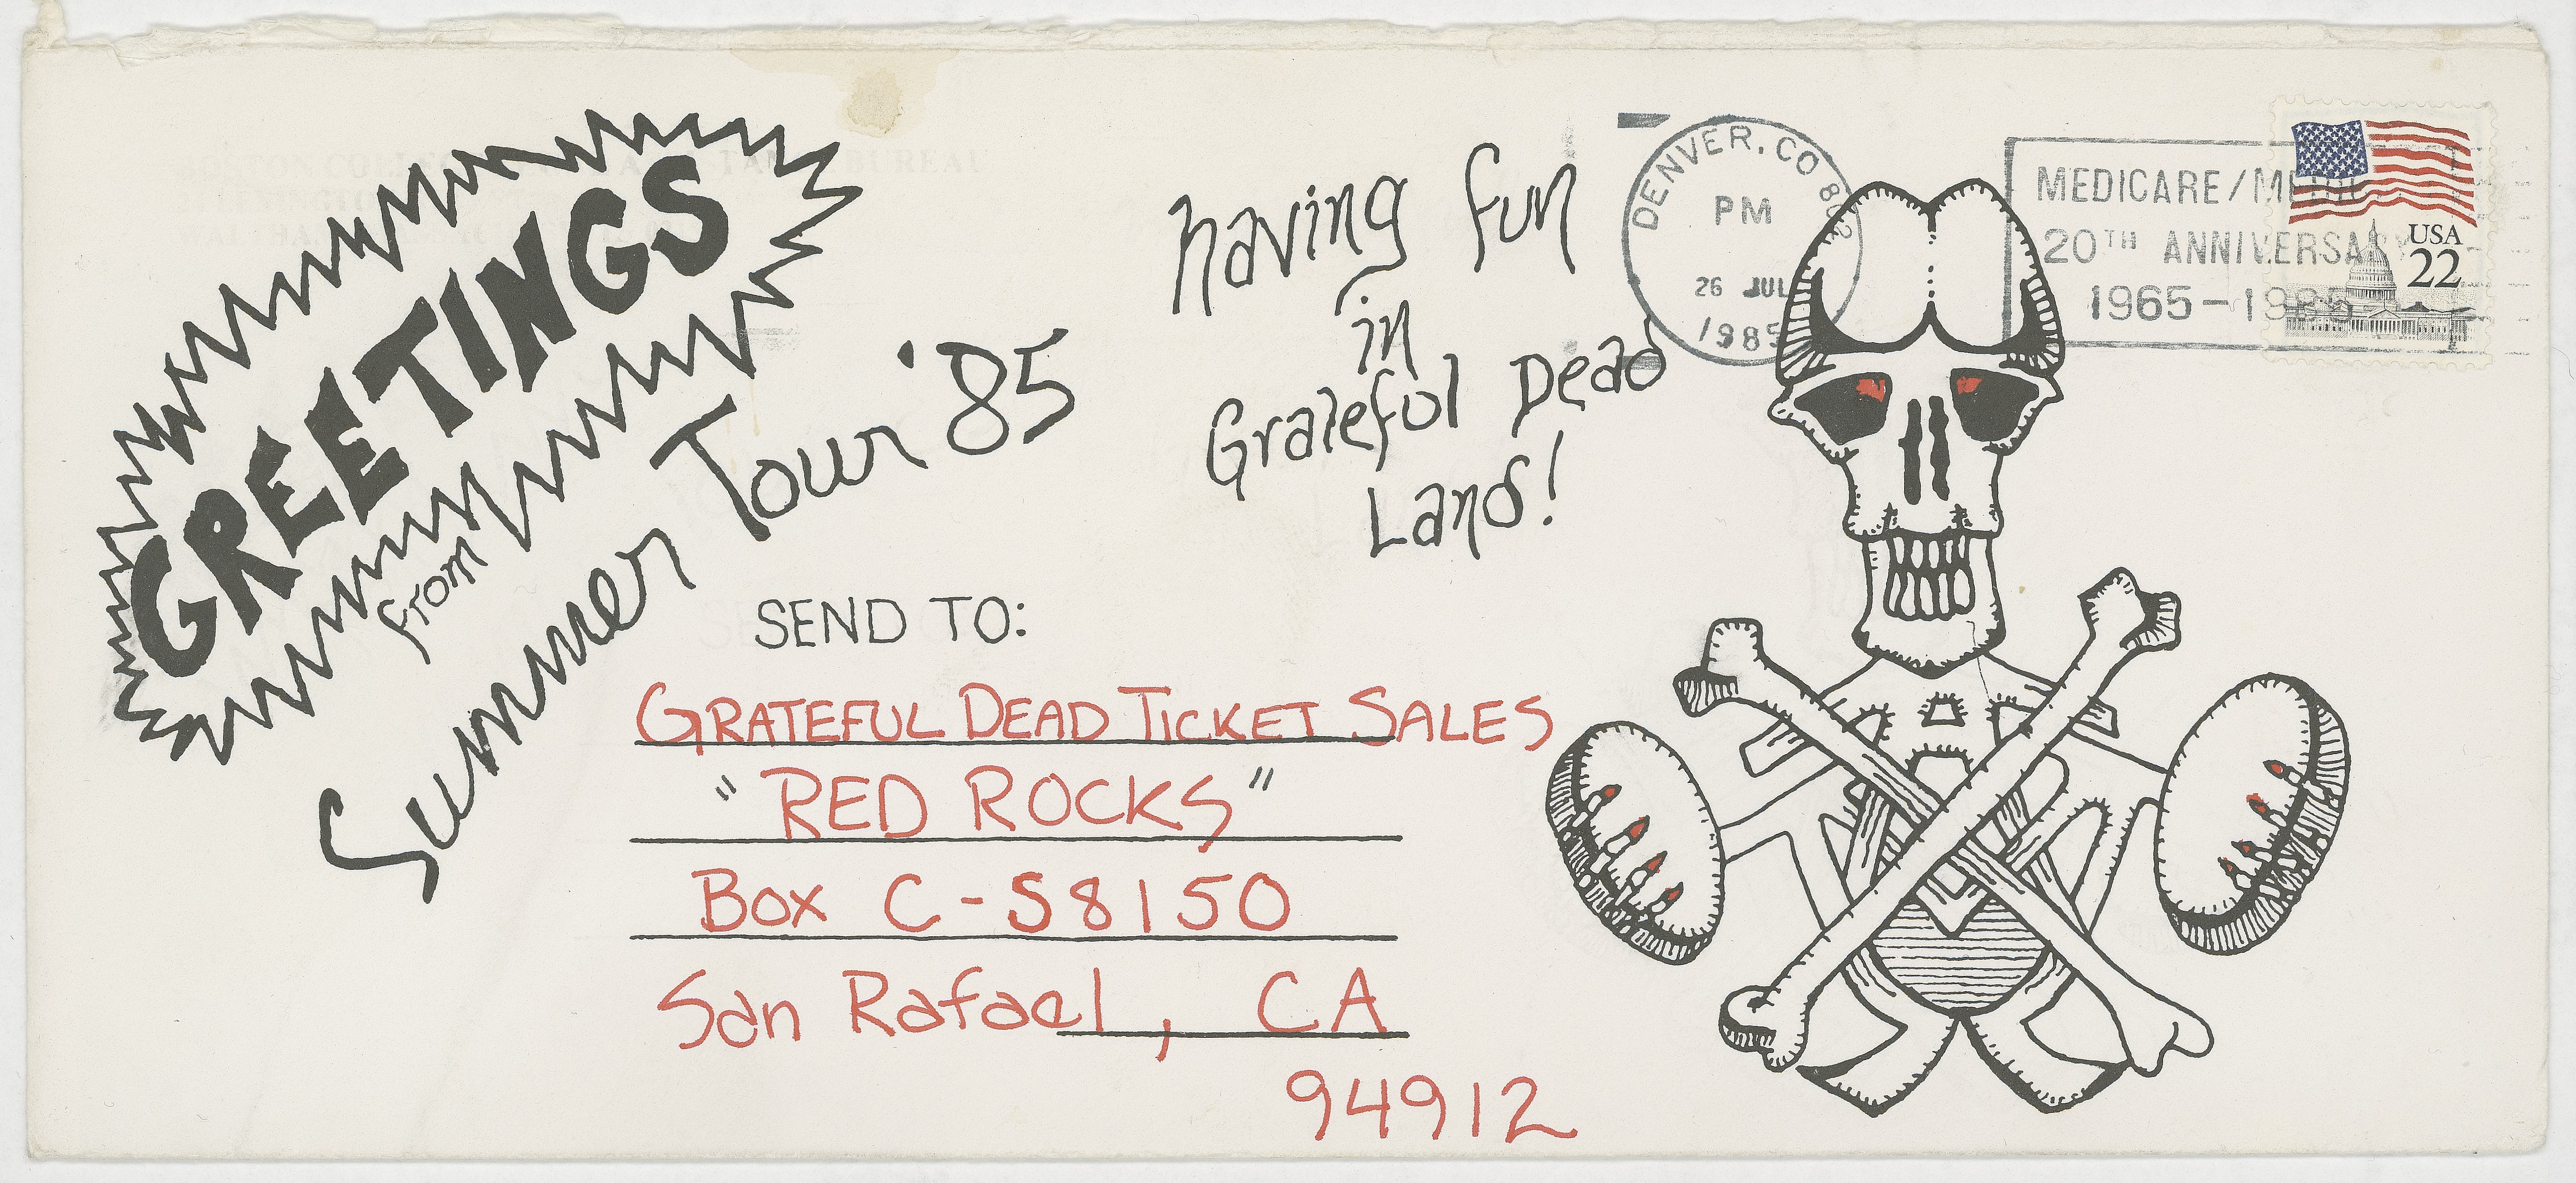 GREETINGS
from
Summer Tour '85
having fun
in
Grateful Dead
Land!
DENVER, CO 802
PM
26 JUL
1985
MEDICARE/
20TH ANNIVERSARY
1965-1985
USA
22
SEND TO:
GRATEFUL DEAD TICKET SALES
"RED ROCKS"
Box C-S8150
San Rafael, CA
94912